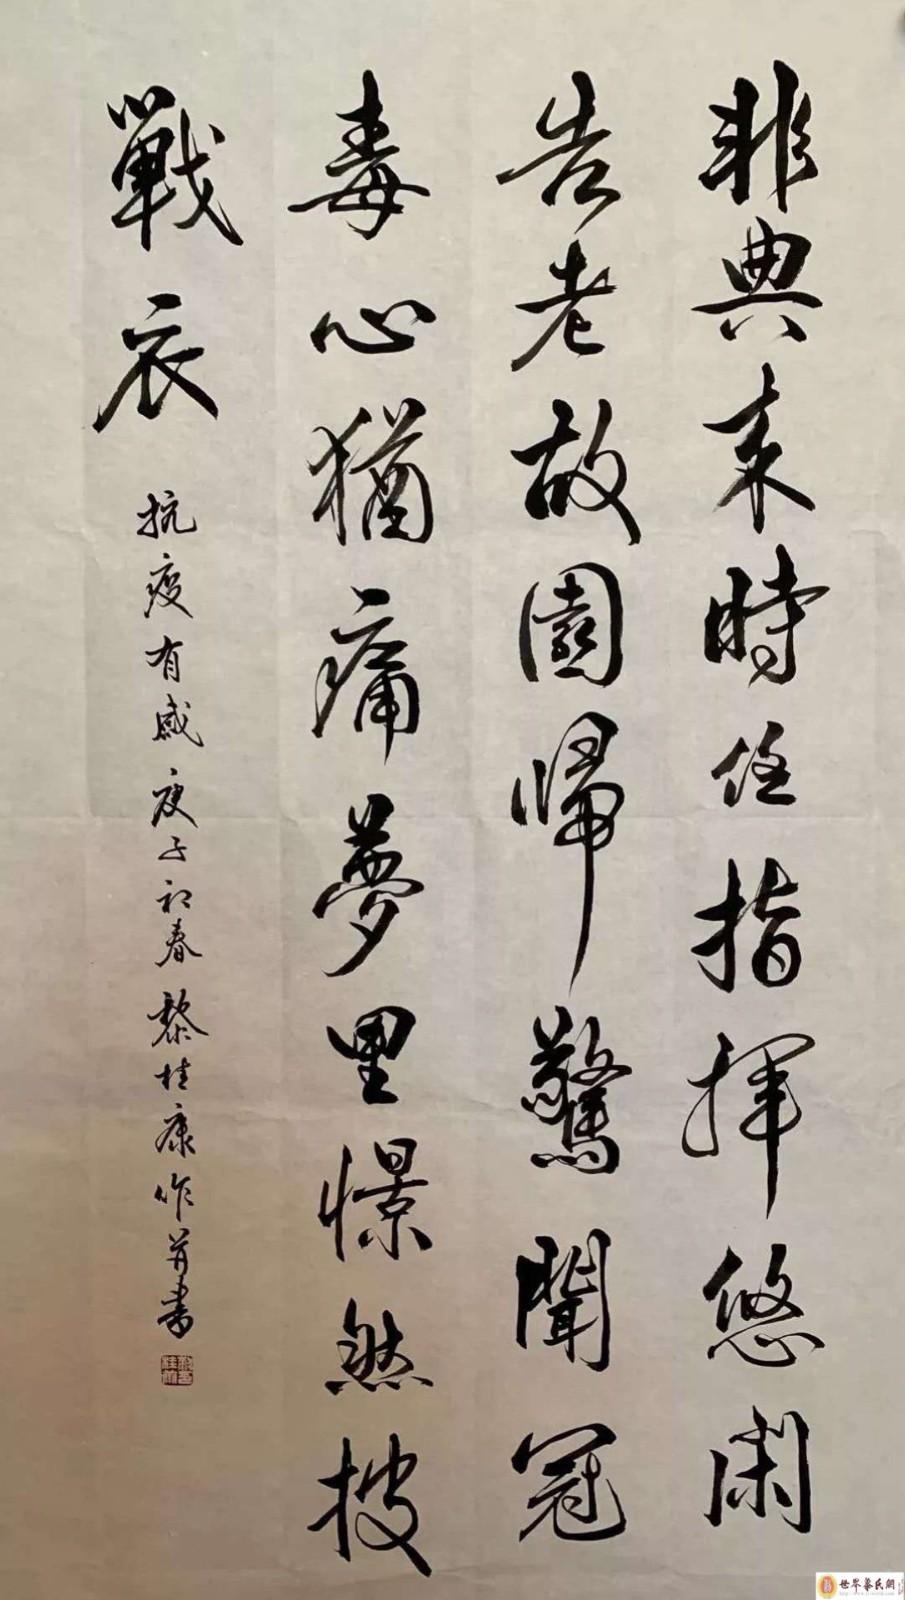 非典来時任指揮悠閑
告老故園歸驚聞冠
毒心猶痛夢里憬然披
戰衣
抗疫有感庚子初春黎桂康作并書
世界黎氏網